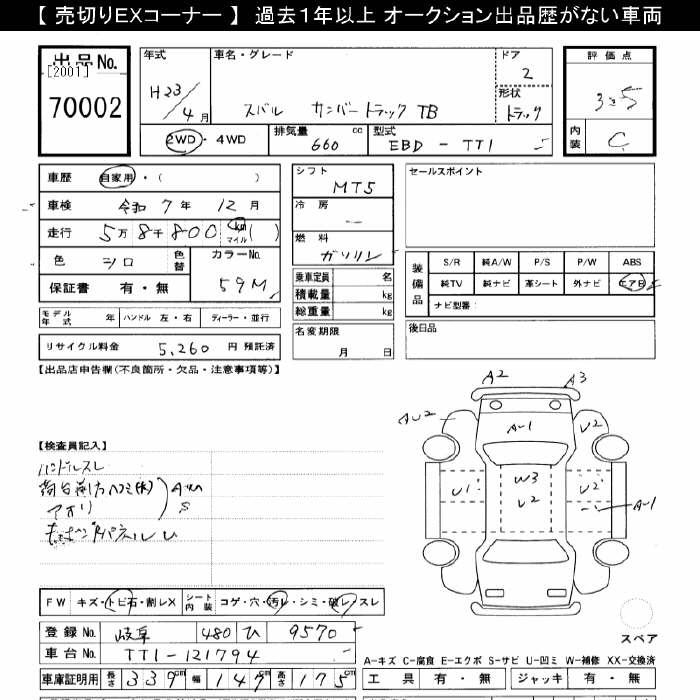 【 売切りEXコーナー 】 過去1年以上 オークション出品歴がない車両
出品No.
[2001]
70002
年式
H23/4月
車名・グレード
スバル サンバートラック TB
ドア
2
形状
トラック
評価点
3.5
内装
C
2WD・4WD
排気量 660 cc
型式 EBD - TT1
車歴 自家用・( )
車検 令和 7 年 12 月
走行 5万 8千 800 km マイル ( )
色 シロ
色替
カラーNo. 59M
保証書 有・無
モデル年式 年
ハンドル 左・右
ディーラー・並行
リサイクル料金 5,260 円 預託済
シフト
MT5
冷房
燃料
ガソリン
乗車定員 名
積載量 kg
総重量 kg
名変期限
月 日
セールスポイント
装備品
S/R 純A/W P/S P/W ABS
純TV 純ナビ 革シート 外ナビ エアB
ナビ型番:
後日品
【出品店申告欄(不良箇所・欠品・注意事項等)】
【検査員記入】
ハンドルスレ
アオリ
A2
A3
AU2
A-1
U2
U1
W3
U2
U2
A-1
FW キズ・トビ石・割レX
シート内装 コゲ・穴・汚レ・シミ・破レ・スレ
登録No. 岐阜 480 ひ 9570
車台No. TT1-121794
車庫証明用 長さ 339 cm 幅 147 cm 高さ 175 cm
スペア
A-キズ C-腐食 E-エクボ S-サビ U-凹ミ W-補修 XX-交換済
工具 有・無 ジャッキ 有・無